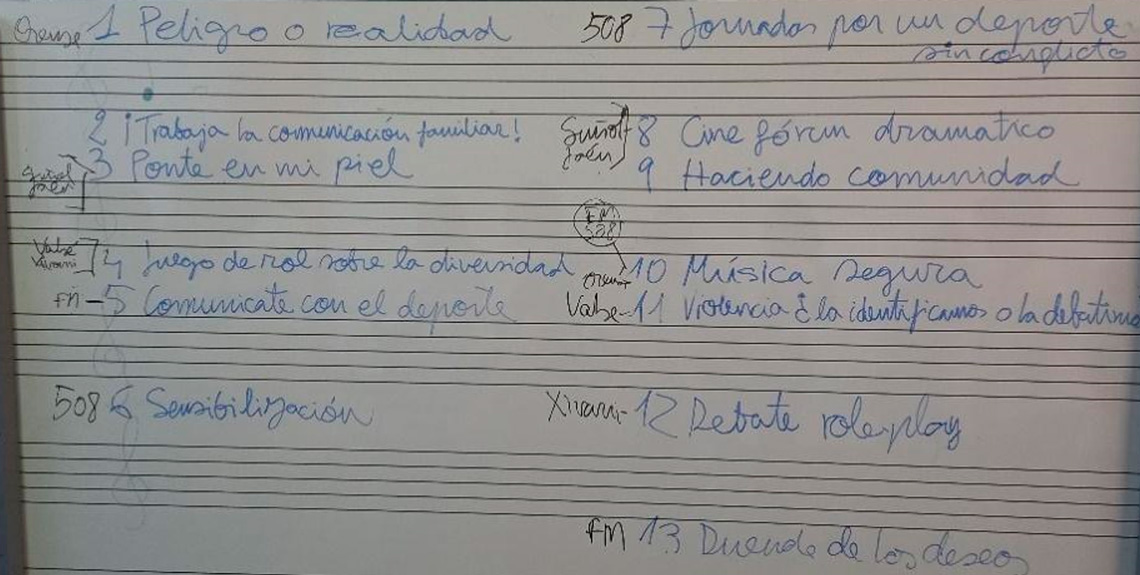 Orense 1 Peligro o realidad
2 ¡Trabaja la comunicación familiar!
3 Ponte en mi piel
Suñol Jaén
Valse
4 Juego de rol sobre la diversidad
FM - 5 Comunicate con el deporte
508 6 Sensibilización
508 7 Jornadas por un deporte
sin conflicto
Suñol 8 Cine fórum dramatico
Jaén
9 Haciendo comunidad
FM
508
10 Música segura
Valse - 11 Violencia ¿ la identificamos o la debatimos
Xivarri - 12 Debate role-play
FM 13 Duende de los deseos